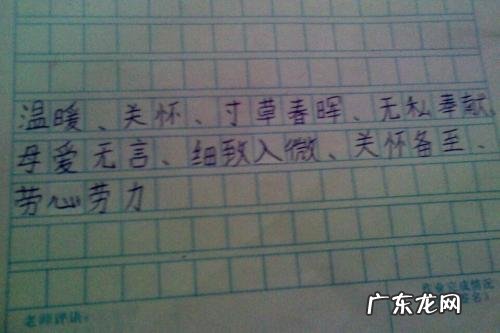 温暖、关怀、寸草春晖、无私奉献、
母爱无言、细致入微、关怀备至、
劳心劳力
作业完成情况
签名）
老师评语：
广东龙网